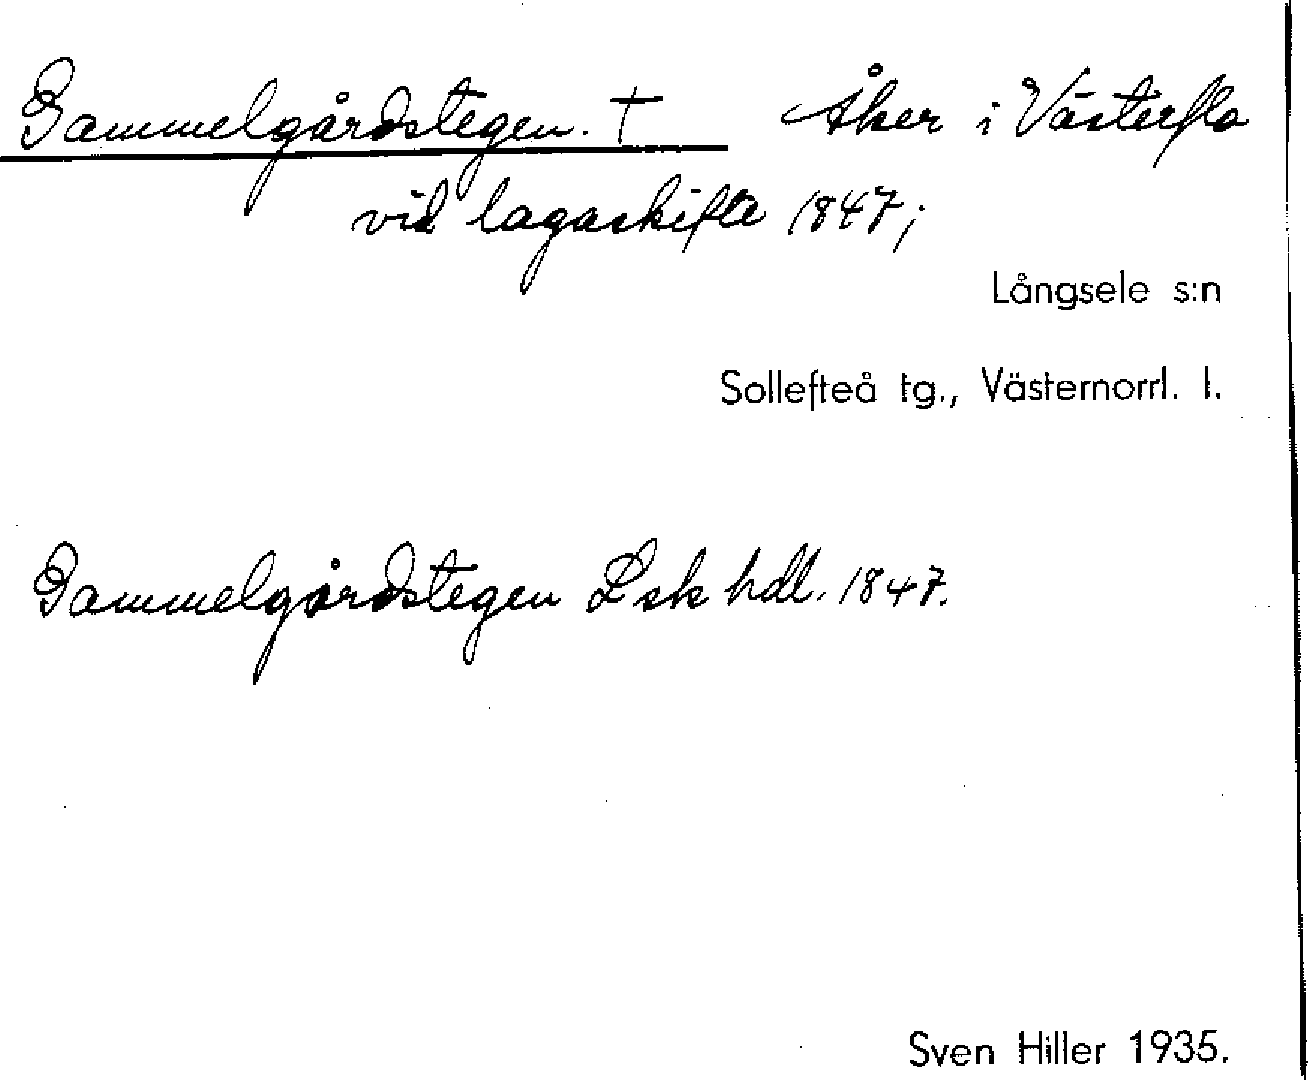 Gammelgårdstegen. † Åker i Västerflo
vid lagaskifte 1847;
Långsele s:n
Sollefteå tg., Västernorrl. l.
Gammelgårdstegen Lsk hdl. 1847.
Sven Hiller 1935.